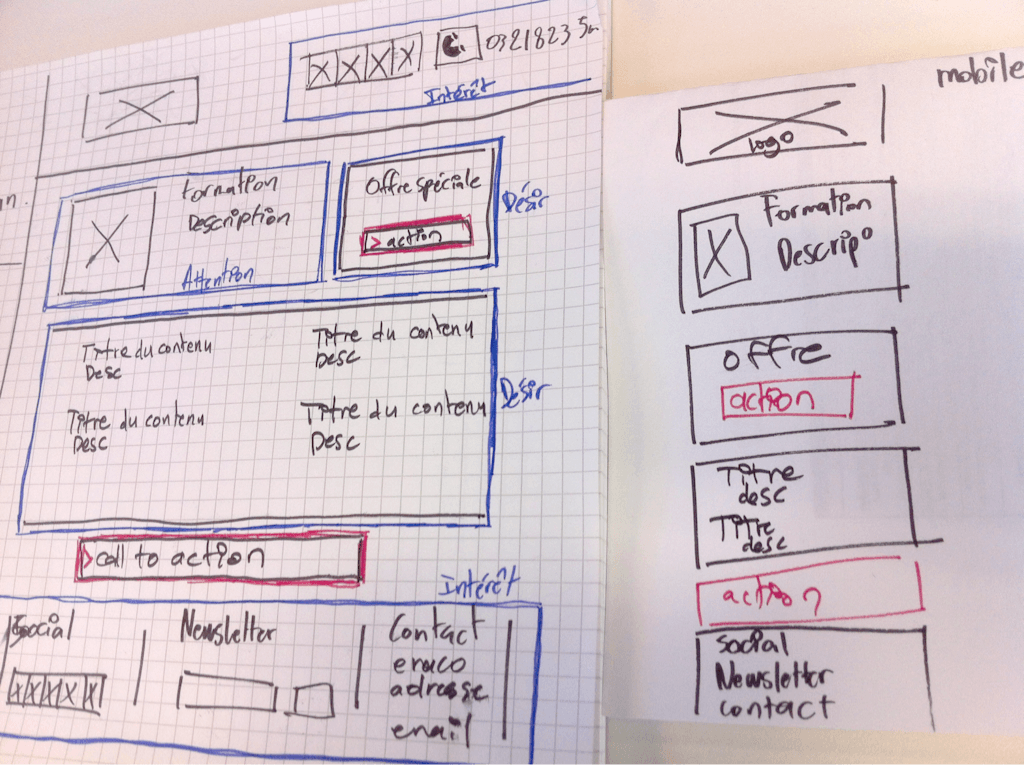 032182
Intérêt
Formation
Description
Attention
Offre spéciale
> action
Désir
Titre du contenu
Desc
Titre du contenu
Desc
Titre du contenu
Desc
Titre du contenu
Desc
Désir
> call to action
Intérêt
Social
Newsletter
Contact
enaco
adresse
email
mobile
logo
Formation
Descrip°
Offre
action
Titre
desc
Titre
desc
action
social
Newsletter
contact